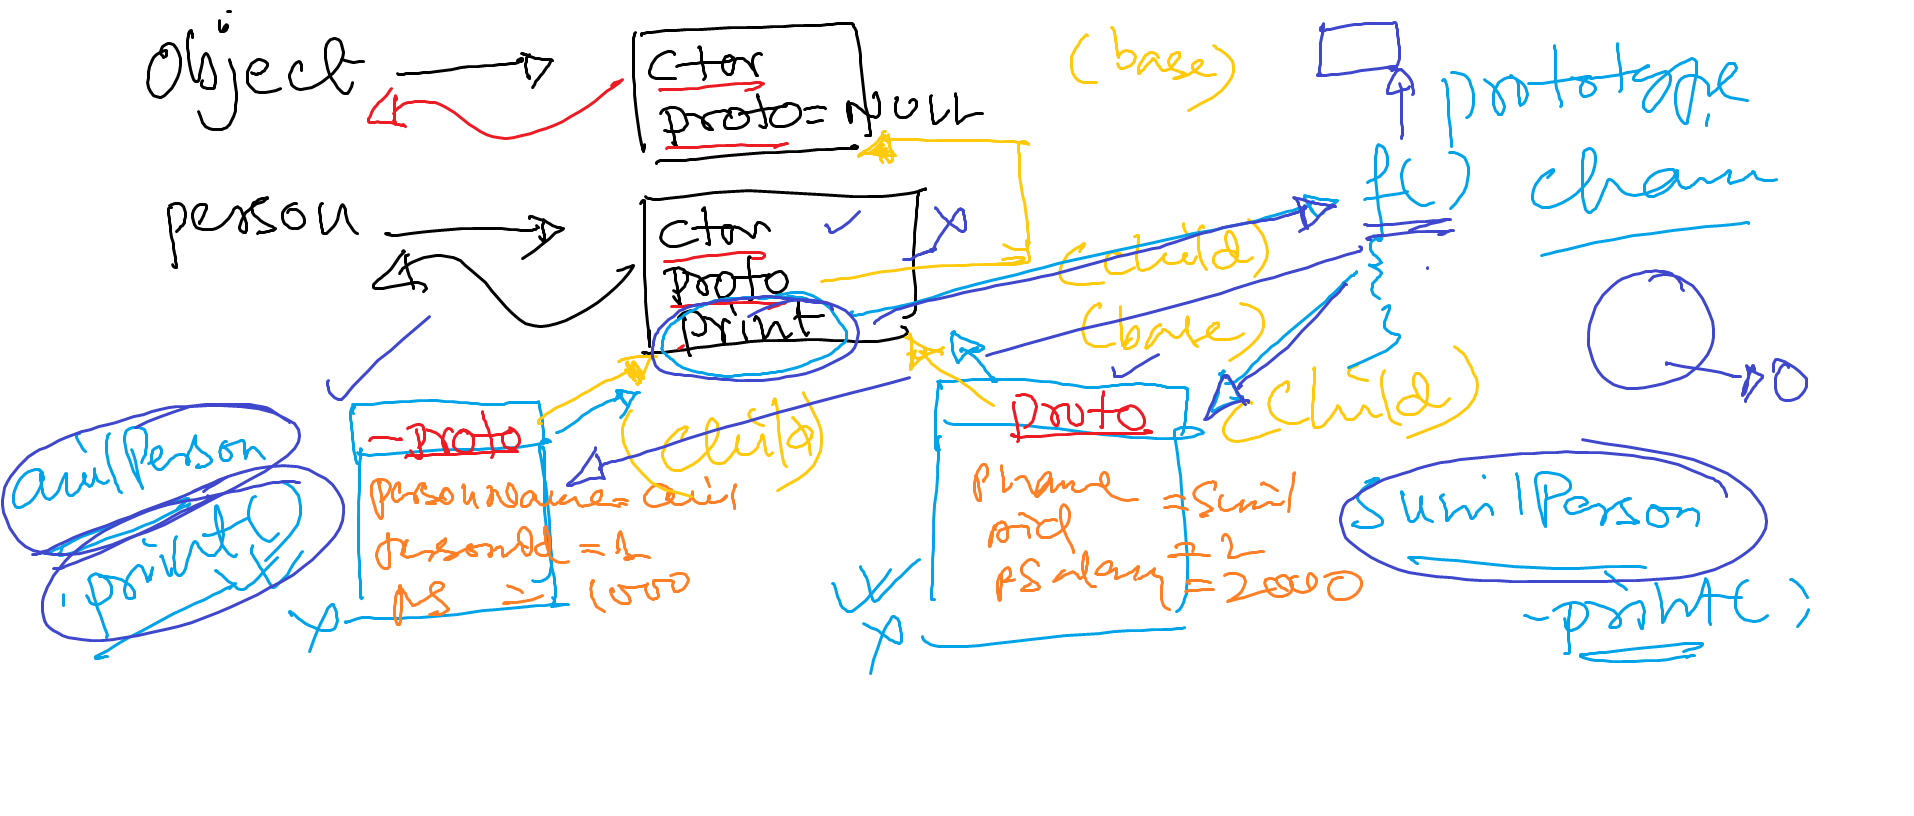 object
ctor
proto = NULL
(base)
prototype
chain
person
ctor
proto
print
f()
(child)
(base)
(child)
(child)
anilPerson
.print()
- proto
personName = anil
personId = 1
ps = 1000
proto
pname = Sunil
pid = 2
pSalary = 20000
SunilPerson
-print()